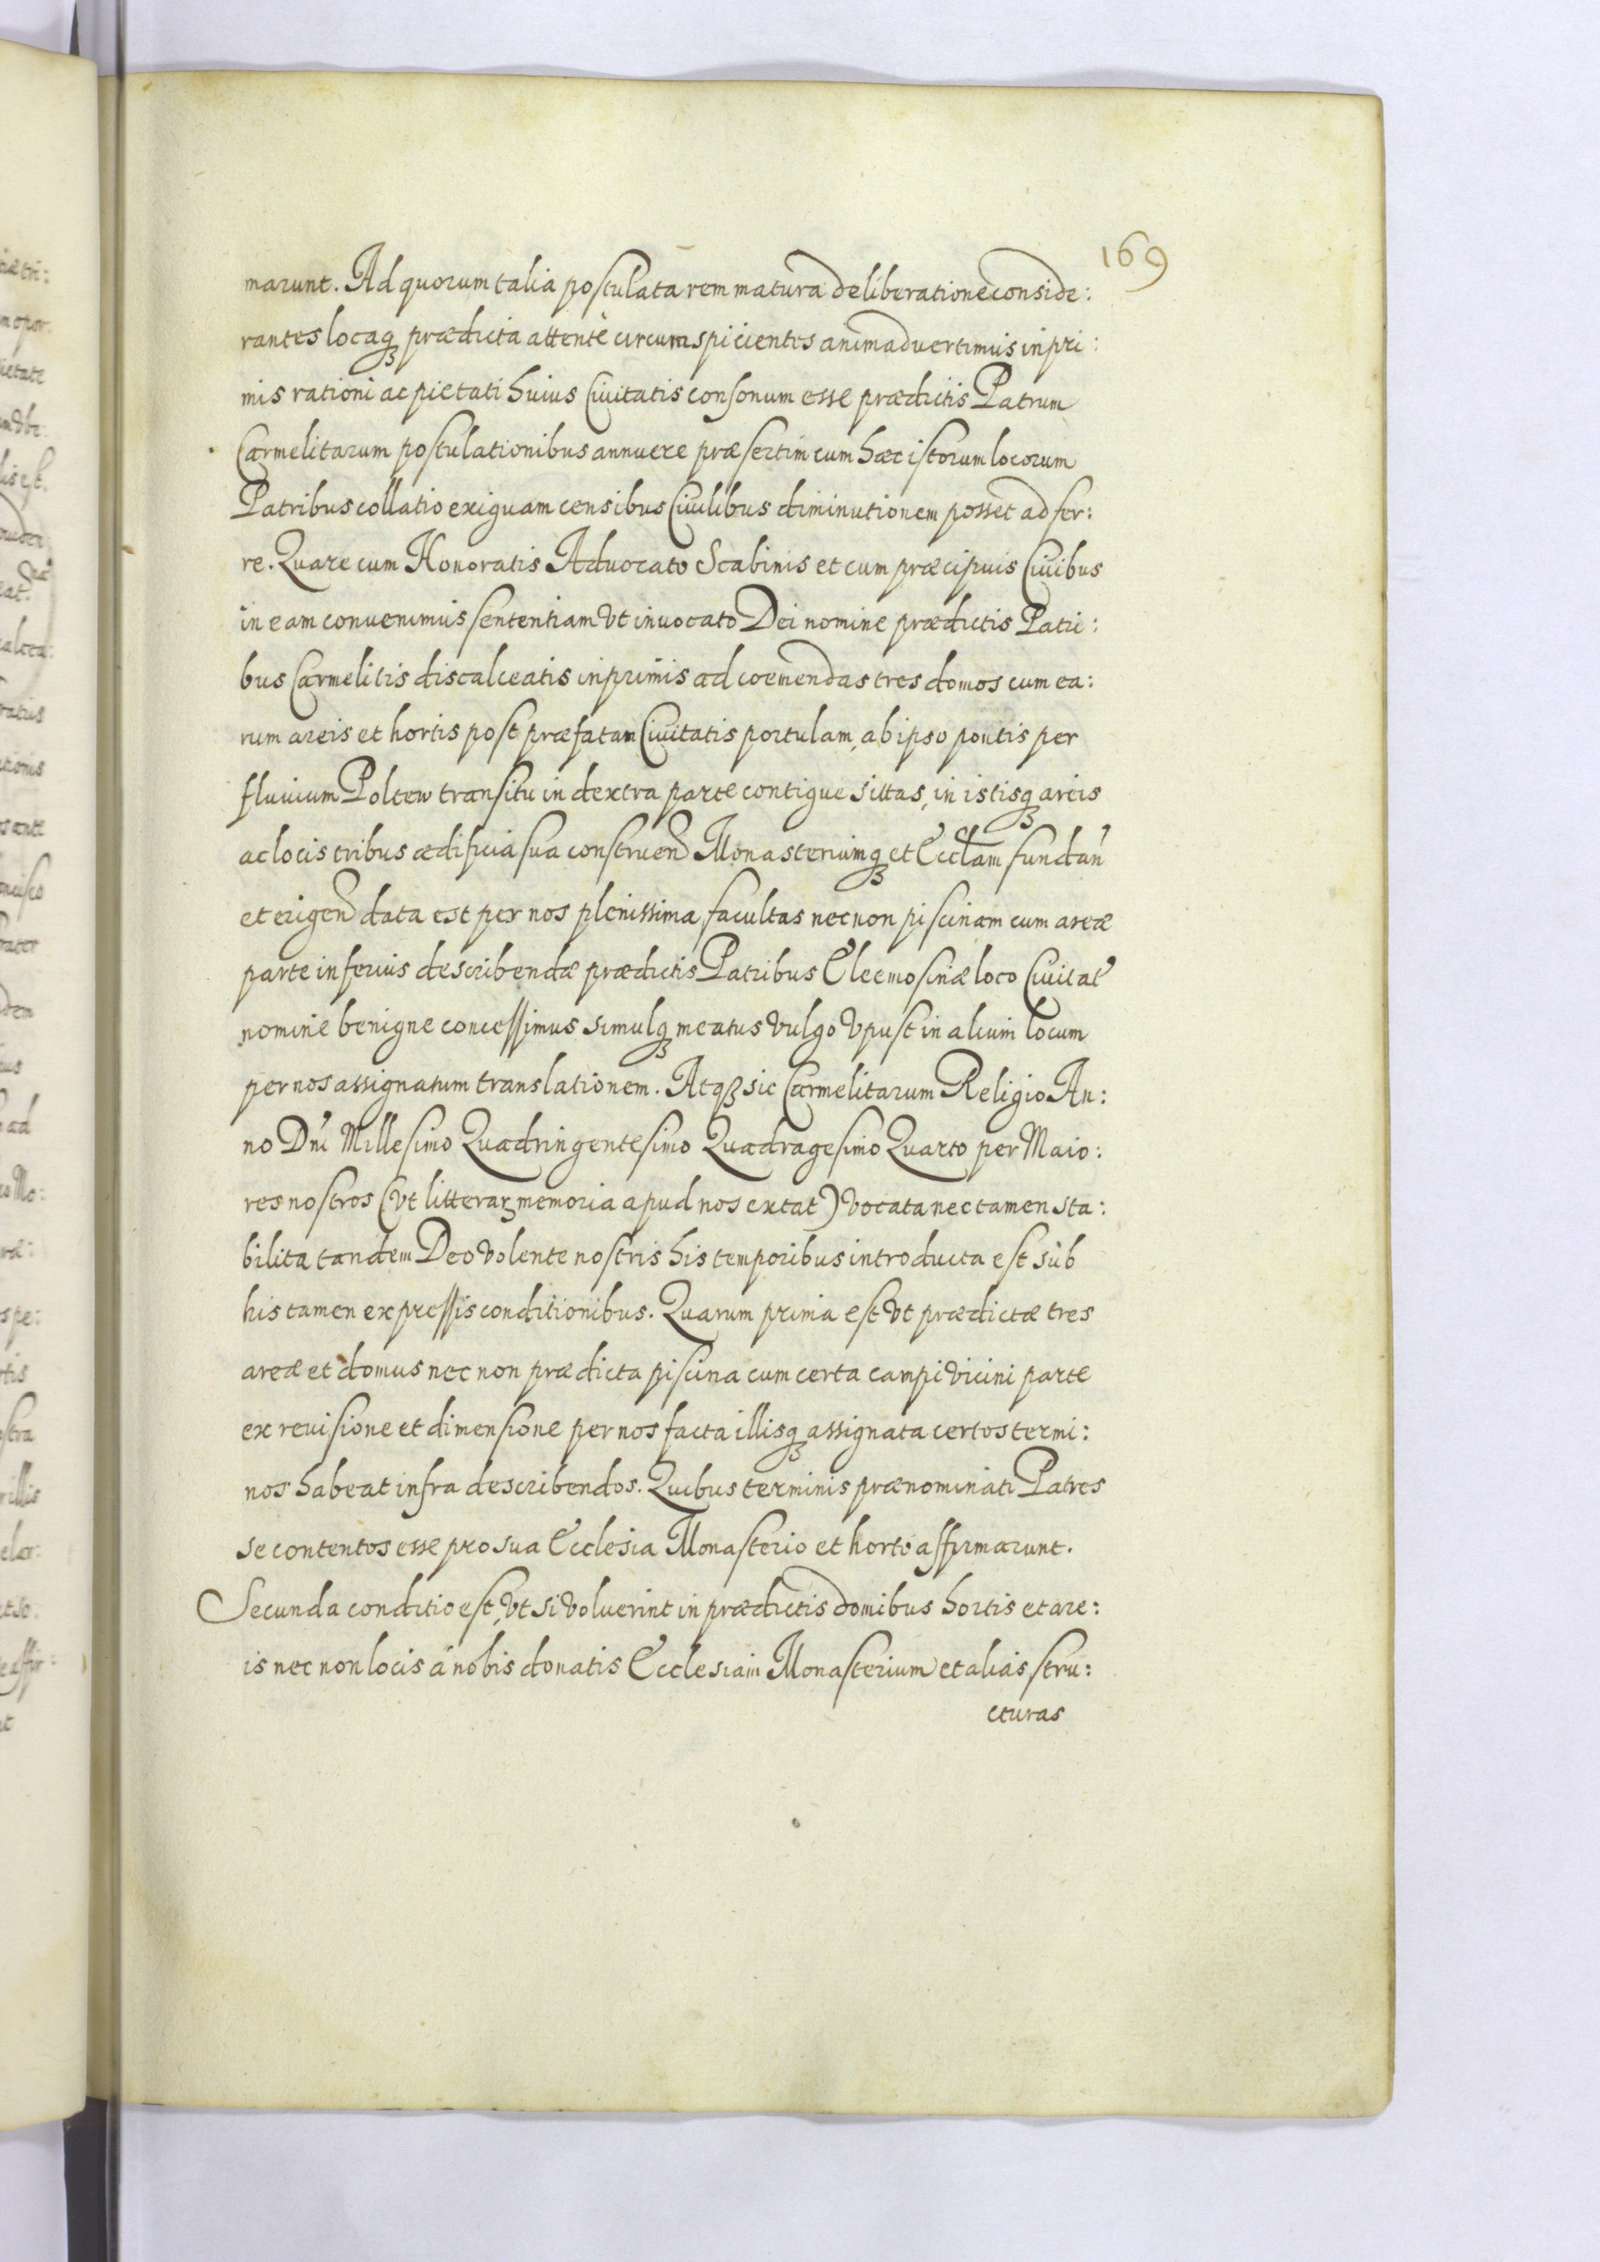 169
marunt. Ad quorum talia postulata rem matura deliberatione conside:
rantes locaqꝫ prædicta attentè circumspicientes animadvertimus inpri:
mis rationi ac pietati huius Civitatis consonum esse prædictis Patrum
Carmelitarum postulationibus annuere præsertim cum hæc istorum locorum
Patribus collatio exiguam censibus Civilibus diminutionem posset adfer:
re. Quare cum Honoratis Advocato Scabinis et cum præcipuis Civibus
in eam convenimus sententiam vt invocato Dei nomine prædictis Patri:
bus Carmelitis discalceatis inprimis ad coemendas tres domos cum ea:
rum areis et hortis post præfatam Civitatis portulam, ab ipso pontis per
fluvium Poltew transitu in dextra parte contigue sittas, in istisqꝫ areis
ac locis tribus ædificia sua construen Monasteriumqꝫ et Ecclam fundan
et erigen data est per nos plenissima facultas nec non piscinam cum areæ
parte inferius describendæ prædictis Patribus Eleemosinæ loco Civitat
nomine benigne concessimus simulqꝫ meatus vulgo vpust in alium locum
per nos assignatum translationem. Atqꝫ sic Carmelitarum Religio An:
no Dni Millesimo Quadringentesimo Quadragesimo Quarto per Maio:
res nostros (vt litterarꝫ memoria apud nos extat) vocata nec tamen sta:
bilita tandem Deo volente nostris his temporibus introducta est sub
his tamen expressis conditionibus. Quarum prima est vt prædictæ tres
areæ et domus nec non prædicta piscina cum certa campi vicini parte
ex revisione et dimensione per nos facta illisqꝫ assignata certos termi:
nos habeat infra describendos. Quibus terminis prænominati Patres
se contentos esse pro sua Ecclesia Monasterio et horto affirmarunt.
Secunda conditio est, vt si voluerint in prædictis domibus hortis et are:
is nec non locis a nobis donatis Ecclesiam Monasterium et alias stru:
cturas